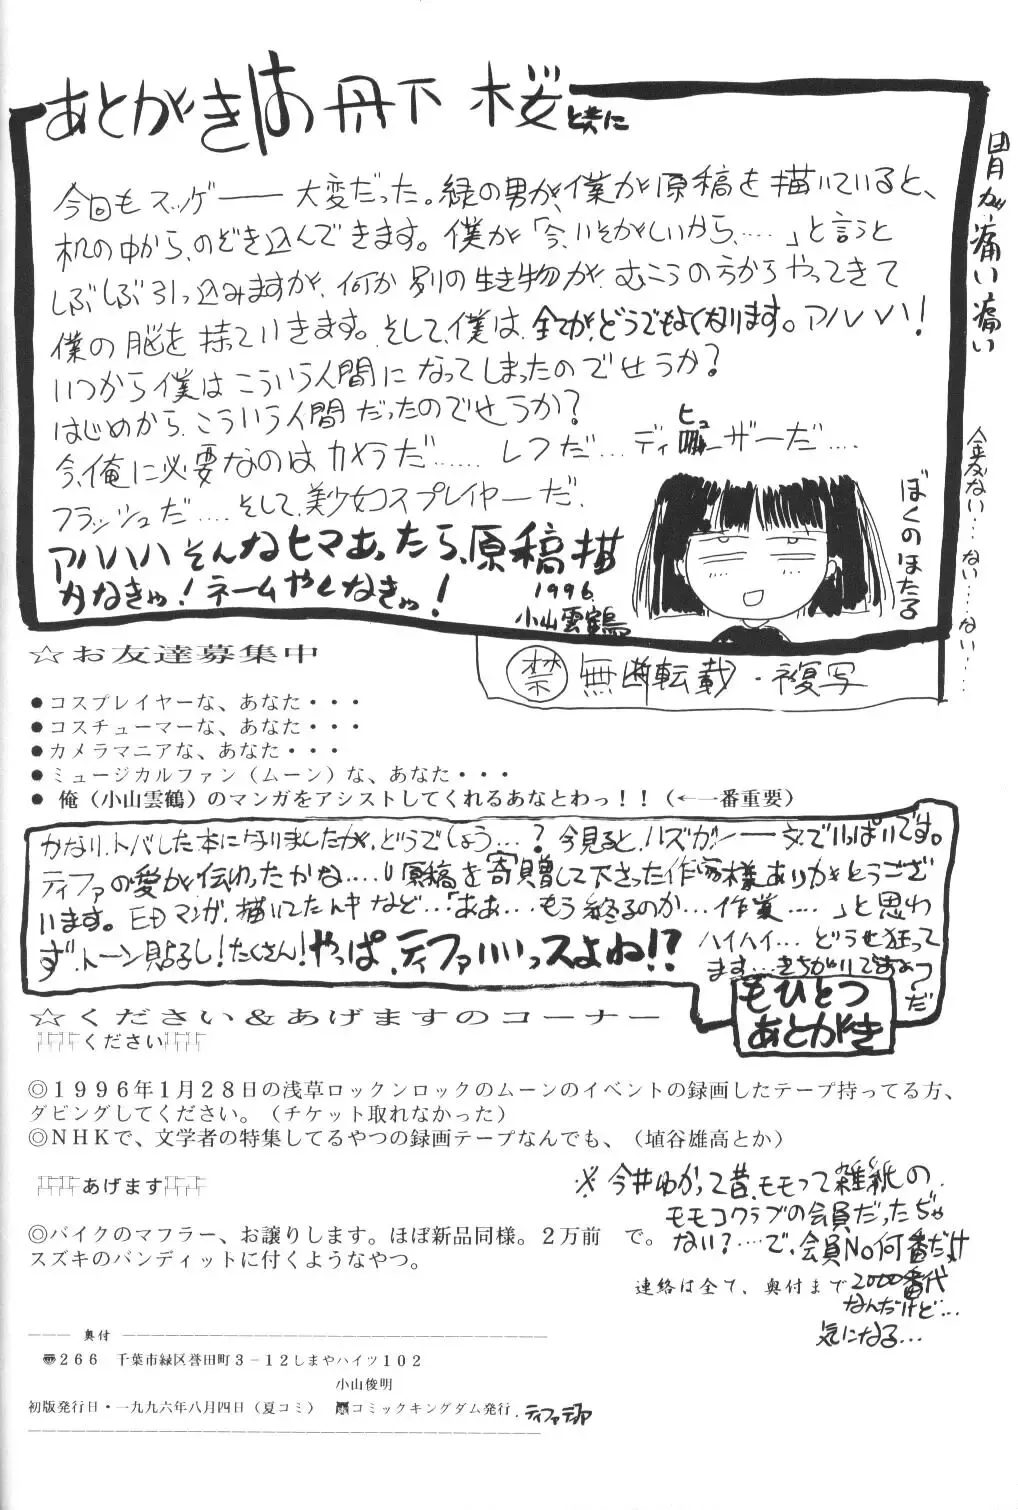 あとがきは丹下 桜と共に
今回もスッゲー── 大変だった。緑の男が、僕が原稿を描いていると、
机の中から、のぞき込んできます。僕が「今、いそがしいから、‥‥」と言うと
しぶしぶ引っ込みますが、何か別の生き物が、むこうの方からやってきて
僕の脳を持っていきます。そして、僕は、全てが、どうでもよくなります。アハハハ!
いつから僕はこういう人間になってしまったのでせうか?
はじめから、こういう人間だったのでせうか?
今、俺に必要なのはカメラだ……レフだ…ディヒューザーだ‥‥
フラッシュだ‥‥そして、美少女コスプレイヤーだ、
アハハハそんなヒマあったら、原稿描
かなきゃ!ネームやんなきゃ!
1996.
小山雲鶴
ぼくのほたる
胃が痛い痛い
金がない…ない…ない…
禁 無断転載・複写
☆お友達募集中
●コスプレイヤーな、あなた・・・
●コスチューマーな、あなた・・・
●カメラマニアな、あなた・・・
●ミュージカルファン(ムーン)な、あなた・・・
●俺(小山雲鶴)のマンガをアシストしてくれるあなとわっ!!(←一番重要)
かなり、トバした本になりましたが、どうでしょう…?今見ると、ハズガシー──文でいっぱいです。
ティファの愛が伝わったかな‥‥原稿を寄贈して下さった作家様ありがとうござ
います。EDマンガ、描いてた時など…「ああ…もう終るのか…作業‥‥」と思わ
ず、トーン貼るし!たくさん!やっぱ、ティファいいっスよね!?ハイハイ…どうせ狂って
ます…きちがいですよっだ
もひとつ
あとがき
☆ください&あげますのコーナー
ください
◎1996年1月28日の浅草ロックンロックのムーンのイベントの録画したテープ持ってる方、
ダビングしてください。(チケット取れなかった)
◎NHKで、文学者の特集してるやつの録画テープなんでも、(埴谷雄高とか)
あげます
◎バイクのマフラー、お譲りします。ほぼ新品同様。2万前 で。
スズキのバンディットに付くようなやつ。
※今井ゆかって昔、モモって雑紙の
モモコクラブの会員だったぢゃ
ない?…で、会員No何番だっけ
2000番代
なんだけど…
気になる…
連絡は全て、奥付まで
奥付
〒266 千葉市緑区誉田町3-12しまやハイツ102
小山俊明
初版発行日・一九九六年八月四日(夏コミ) コミックキングダム発行、ティファティファ